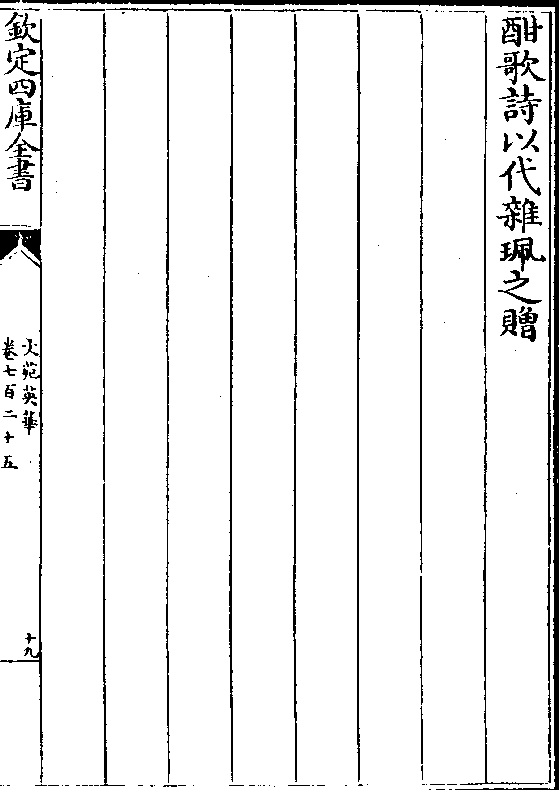 酣歌詩以代雜珮之贈
欽定四庫全書
文苑英華
卷七百二十五
十九